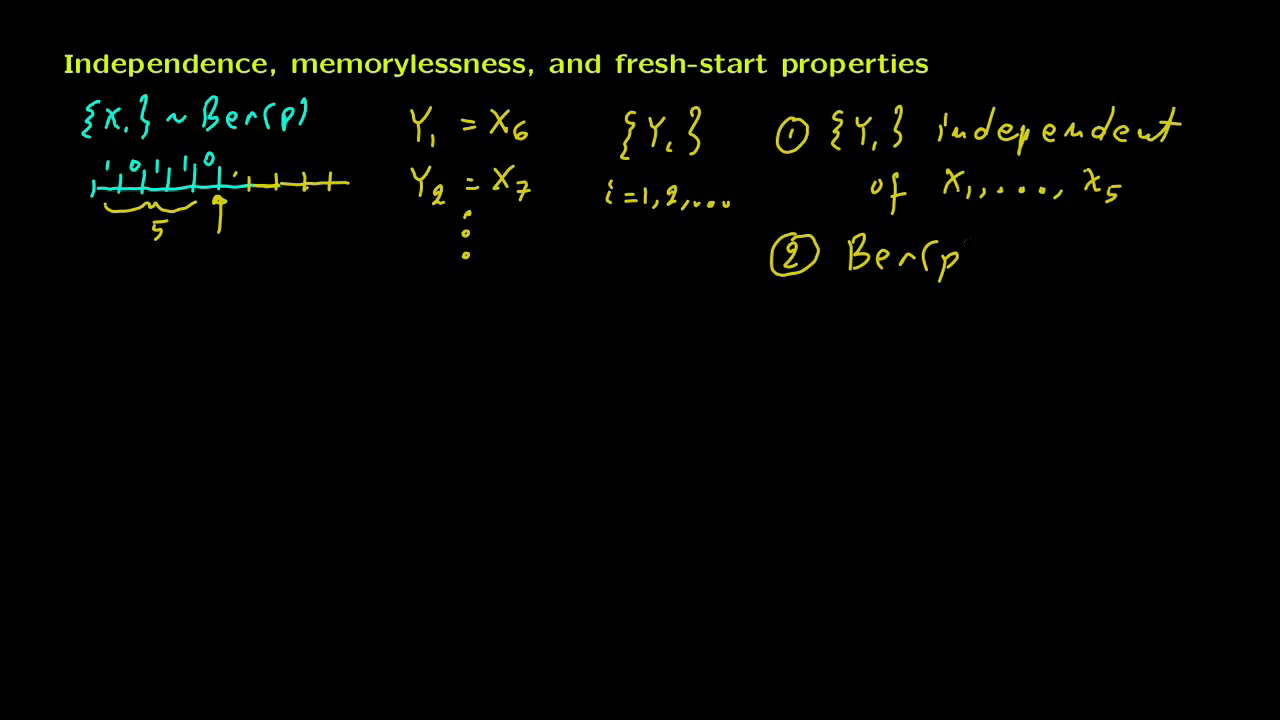 Independence, memorylessness, and fresh-start properties
{X_i} ~ Ber(p)
1 0 1 1 0
5
Y_1 = X_6
Y_2 = X_7
⋮
{Y_i}
i = 1, 2, ...
① {Y_i} independent
of X_1, ..., X_5
② Ber(p